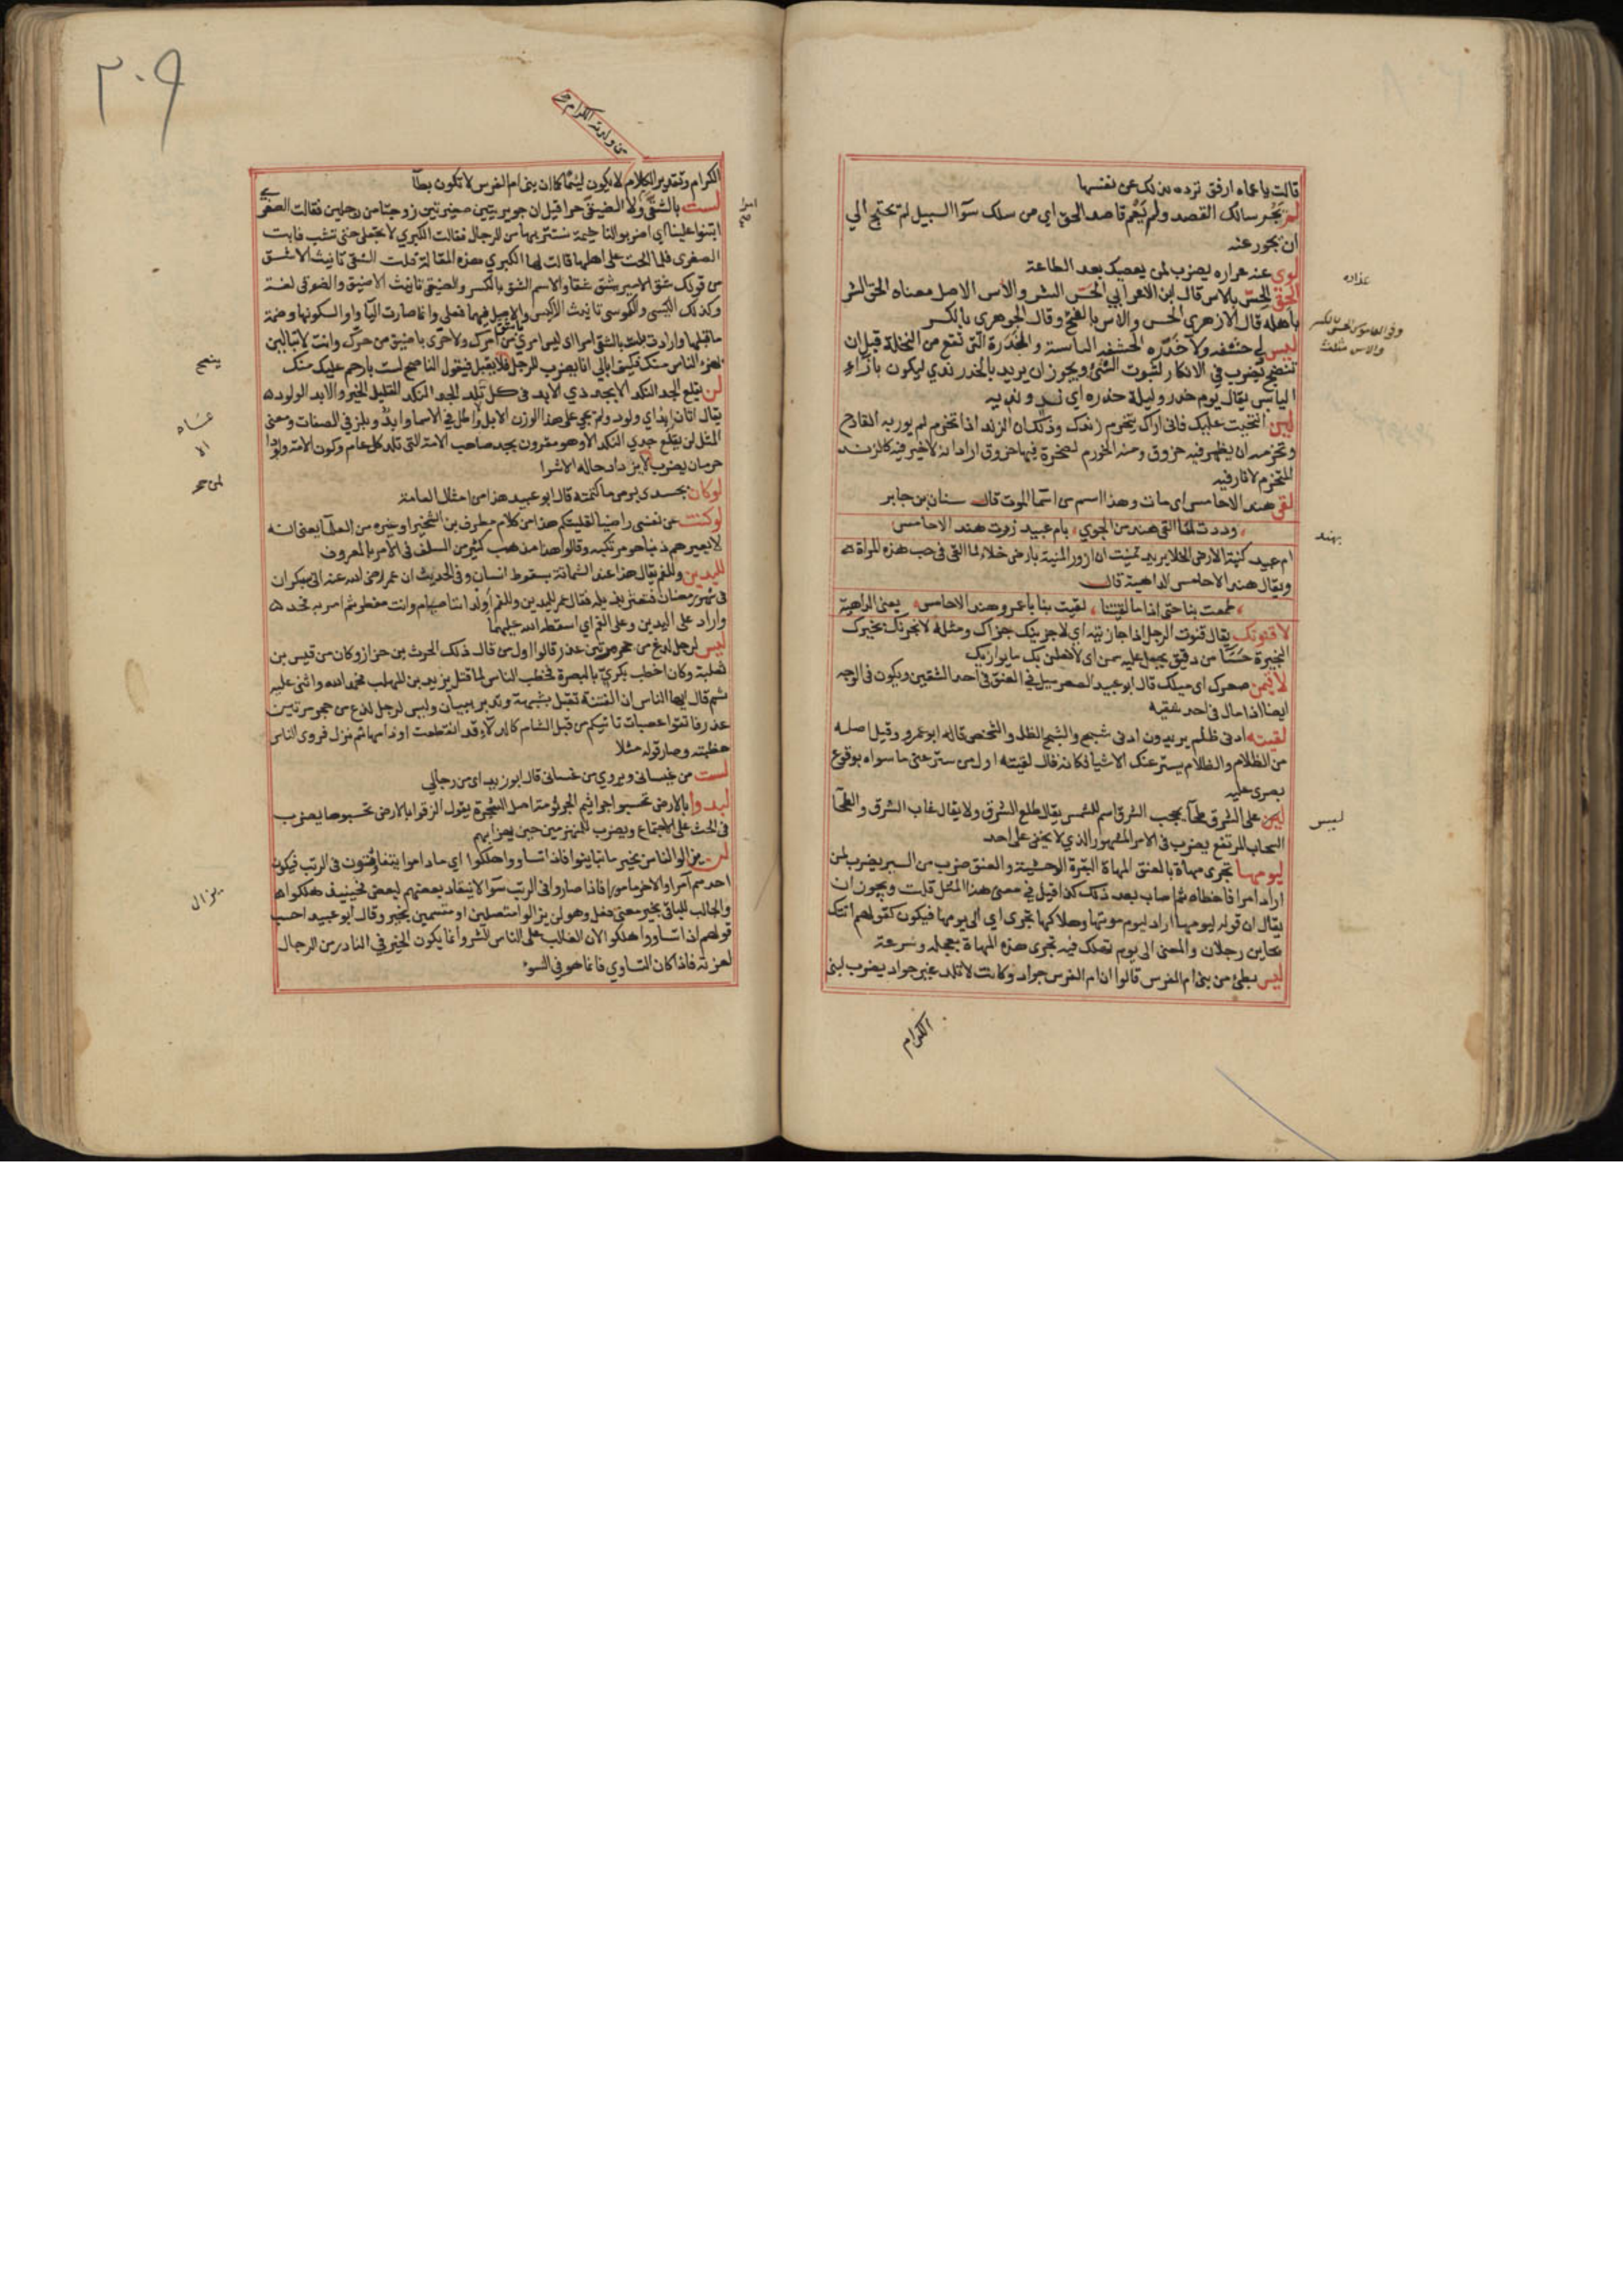 قالت يا عماه ارفق ترده بذلك عن نفسها
لم يجر سالك القصد ولم يعم قاصد الحق اي من سلك سوآ السبيل لم يحتج الي
ان يجور عنه
لوى عنه عذاره يضرب لمن يعصيك بعد الطاعة
الحق الحس بالاس قال ابن الاعرابي الحس الشر والاس الاصل معناه الحق الشر
باهله قال الازهري الحس والاس بالفتح وقال الجوهري بالكسر
ليس لي حشفه ولا خدره الحشفه اليابسة والخدرة التى تقع من النخلة قبل ان
تنضج يضرب في الانكار لثبوت الشئ ويجوز ان يريد بالخدر ندي ليكون بازاء
اليابس يقال يوم خدر وليلة خدره اي ند و نديه
لئن انتحيت عليك فانى اراك يتخرم زندك وذلك ان الزند اذا تخرم لم يور به القادح
وتخرمه ان يظهر فيه خروق ومنه الخورم لصخرة فيها خروق اراد انه لا خير فيه كالزند
المتخرم لا نار فيه
لقى هند الاحامس اى مات وهذا اسم من اسمآ الموت قال سنان بن جابر
وددت لما القى بهند من الجوي بام عبيد زرت هند الاحامس
ام عبيد كنية الارض الخلا يريد تمنيت ان ازور المنية بارض خلاء لما القى فى حب هذه المراة
ويقال هند الاحامس الداهية قال
طمعت بنا حتى اذا ما لقيتنا لقيت بنا يا عمرو هند الاحامس يعنى الداهية
لاقنونك يقال قنوت الرجل اذا جازيته اي لاجزينك جزاك ومثله لانجرنك نجيرتك
النجيرة حسآ من دقيق يجعل عليه سمن اى لافعلن بك ما يوازيك
لاقيمن صعرك اى ميلك قال ابو عبيد الصعر ميل في العنق فى احد الشقين ويكون فى الوجه
ايضا اذا مال فى احد شقيه
لقيته ادنى ظلم يريدون ادنى شبح والشبح الظل والشخص قاله ابو عمرو وقيل اصله
من الظلام والظلام يستر عنك الاشيا فكانه قال لقيته اول من ستر عنى ما سواه بوقوع
بصرى عليه
ليس على الشرق طخآ يحجب الشرق اسم للشمس يقال طلع الشرق ولا يقال غاب الشرق والطخآ
السحاب المرتفع يضرب فى الامر المشهور الذي لا يخفى على احد
ليومها تجرى مهاة بالعنق المهاة البقرة الوحشية والعنق ضرب من السير يضرب لمن
اراد امرا فاخطاه ثم اصاب بعد ذلك كذا قيل في معنى هذا المثل قلت ويجوز ان
يقال ان قوله ليومها اراد ليوم موتها وهلاكها تجرى اي الى يومها فيكون كقولهم اتتك
بحاين رجلان والمعنى الى يوم تهلك فيه تجرى هذه المهاة بعجلة وسرعة
ليس بطئ من بنى ام الفرس قالوا ان ام الفرس جواد وكانت لا تلد غير جواد يضرب لبنى
الكرام
عذاره
وفى القاموس الحس بالكسر
والاس مثلث
بهند
ليس
٢٠٩
من ولدته الكرام
الكرام وتقدير الكلام لا يكون ليئما كما ان بنى ام الفرس لا تكون بطآ
لست بالشقى ولا الضيقى حرا قيل ان جويريتين صغيرتين زوجتا من رجلين فقالت الصغرى
ابتنوا علينا اي اضربوا لنا خيمة نستتر بها من الرجال فقالت الكبري لا تعجلي حتى نشب فابت
الصغرى فلما الحت على اهلها قالت لها الكبري هذه المقالة قلت الشقى تانيث الاشق
من قولك شق الامر يشق شقا والاسم الشق بالكسر والضيقى تانيث الاضيق والضوقى لغة
وكذلك الكيسى والكوسى تانيث الاكيس والاصل فيهما فعلى وانما صارت اليآ واوا لسكونها وضمة
ما قبلها
لهذه الناس منك فكيف ابالي انا يضرب للرجل فلا يقبل فيقول الناصح لست بارحم عليك منك
لن يقلع الجد النكد الا بجد ذي الابد فى كل ما عام تلد الجد النكد القليل الخير والابد الولود
يقال اتان ابد اي ولود ولم يجي على هذا الوزن الا ابل واطل في الاسما وابد وبلز في الصفات ومعنى
المثل لن يقلع جدي النكد الا وهو مقرون بجد صاحب الامة التى تلد كل عام وكون الامة ولودا
حرمان يضرب لا يزداد حاله الا شرا
لو كان بجسدى برص ما كتمته قال ابو عبيد هذا من امثال العامة
لو كنت عن نفسى راضيا لقليتكم هذا من كلام مطرف بن الشخير او غيره من العلمآ يعنى انه
لا يعيرهم ذنبا هو مرتكبه وقالوا هذا مذهب كثير من السلف فى الامر بالمعروف
لليدين وللفم يقال هذا عند الشماتة بسقوط انسان وفى الحديث ان عمر رضى الله عنه اتى بسكران
فى شهر رمضان فتعثر بذيله فقال عمر لليدين وللفم اولداننا صيام وانت مفطر ثم امر به فحد
واراد على اليدين وعلى الفم اي اسقطه الله عليهما
ليس لرجل لدغ من جحر مرتين عذر قالوا اول من قال ذلك الحرث بن خزاز وكان من قيس بن
ثعلبة وكان اخطب بكرى بالبصرة فخطب الناس لما قتل يزيد بن المهلب فحمد الله واثنى عليه
ثم قال ايها الناس ان الفتنة تقبل بشبهة وتدبر ببيان وليس لرجل لدغ من جحر مرتين
عذر فاتقوا عصبات تاتيكم من قبل الشام كالدلاء قد انقطعت اوذامها ثم نزل فروى الناس
خطبته وصار قوله مثلا
لست من غيسانى ويروى من غسانى قال ابو زيد اى من رجالي
لبدوا بالارض تحسبوا جراثيم الجرثومة اصل الشجرة يقول الزقوا بالارض تحسبوها يضرب
فى الحث على الاجتماع ويضرب للمنهزمين حين يهزا بهم
لن يزالوا الناس بخير ما تباينوا فاذا تساووا هلكوا اي ما داموا يتفاوتون فى الرتب فيكون
احدهم آمرا والاخر مامورا فاذا صاروا فى الرتب سوآ لا ينقاد بعضهم لبعض فحينيذ هلكوا
والجالب للباقى بخير معنى فعل وهو لن يزالوا متصلين او متسمين بخير وقال ابو عبيد احسب
قولهم اذا تساووا هلكوا لان الغالب على الناس الشر وانما يكون الخير في النادر من الرجال
لعزته فاذا كان التساوي فانما هو في السوء
ينصح
يزال